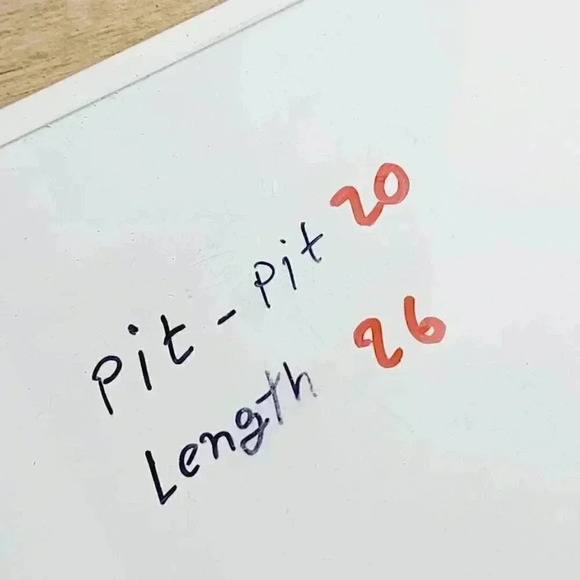 Pit - Pit 20
Length 26